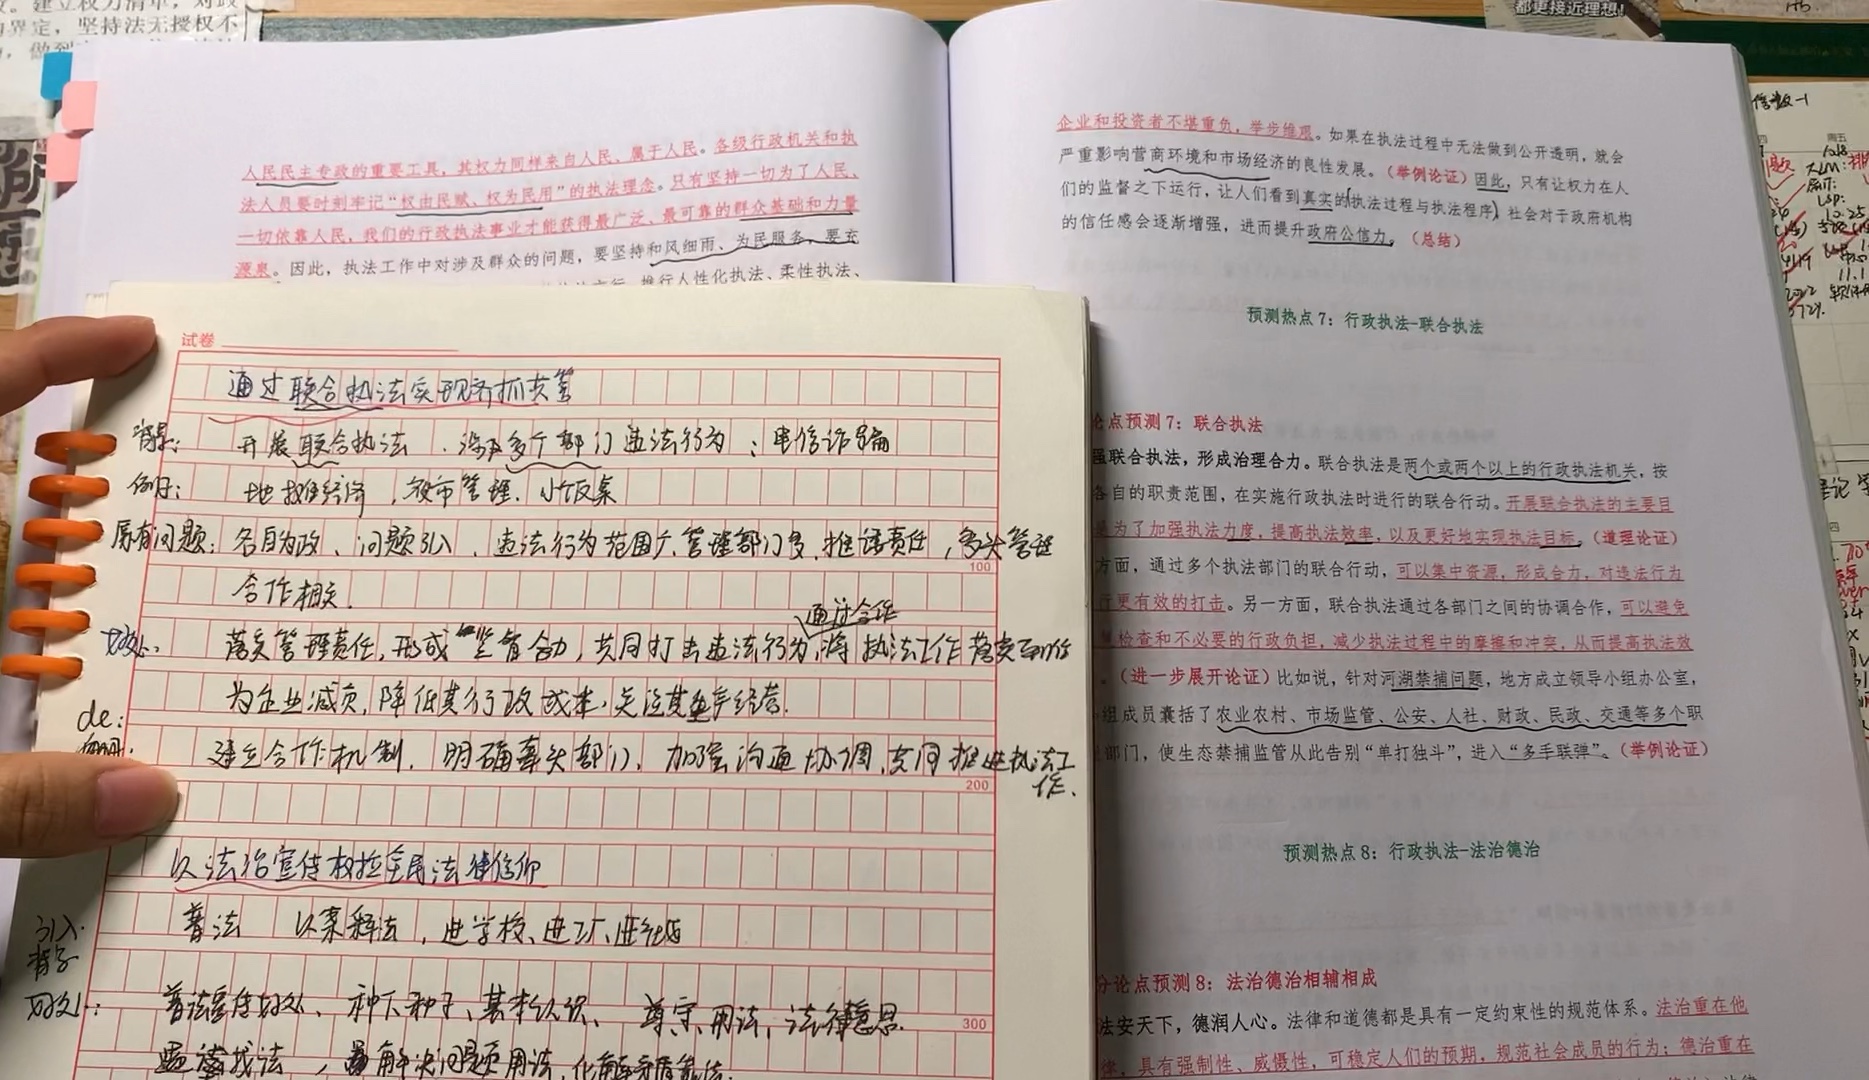 建立权力清单，对政
的界定，坚持法无授权不
都更接近理想！
人民民主专政的重要工具，其权力同样来自人民、属于人民。各级行政机关和执
法人员要时刻牢记“权由民赋、权为民用”的执法理念。只有坚持一切为了人民、
一切依靠人民，我们的行政执法事业才能获得最广泛、最可靠的群众基础和力量
源泉。因此，执法工作中对涉及群众的问题，要坚持和风细雨、为民服务，要充
推行人性化执法、柔性执法、
试卷
通过联合执法实现齐抓共管
背景： 开展联合执法．涉及多个部门违法行为；电信诈骗
例子： 地摊经济，夜市管理、小饭桌
原有问题：各自为政、问题引入、违法行为范围广、管理部门多、推诿责任，多头管理
合作相关．
通过合作
好处： 落实管理责任，形成监管合力，共同打击违法行为，将执法工作落实到位
为企业减负，降低其行政成本，关注其生产经营．
de：
建立合作机制，明确牵头部门，加强沟通协调，共同推进执法工
作．
100
200
以法治宣传树立全民法律信仰
引入 普法 以案释法，进学校、进工厂、进社区
背景
好处： 普法宣传好处、种下种子、基本认识、尊守、用法、法律意思
300
遇事找法，解决问题用法，化解矛盾靠法．
企业和投资者不堪重负，举步维艰。如果在执法过程中无法做到公开透明，就会
严重影响营商环境和市场经济的良性发展。（举例论证）因此，只有让权力在人
们的监督之下运行，让人们看到真实的执法过程与执法程序，社会对于政府机构
的信任感会逐渐增强，进而提升政府公信力。（总结）
预测热点 7：行政执法-联合执法
论点预测 7：联合执法
强联合执法，形成治理合力。联合执法是两个或两个以上的行政执法机关，按
各自的职责范围，在实施行政执法时进行的联合行动。开展联合执法的主要目
是为了加强执法力度，提高执法效率，以及更好地实现执法目标。（道理论证）
方面，通过多个执法部门的联合行动，可以集中资源，形成合力，对违法行为
行更有效的打击。另一方面，联合执法通过各部门之间的协调合作，可以避免
检查和不必要的行政负担，减少执法过程中的摩擦和冲突，从而提高执法效
。（进一步展开论证）比如说，针对河湖禁捕问题，地方成立领导小组办公室，
组成员囊括了农业农村、市场监管、公安、人社、财政、民政、交通等多个职
部门，使生态禁捕监管从此告别“单打独斗”，进入“多手联弹”。（举例论证）
预测热点 8：行政执法-法治德治
分论点预测 8：法治德治相辅相成
法安天下，德润人心。法律和道德都是具有一定约束性的规范体系。法治重在他
律，具有强制性、威慑性，可稳定人们的预期，规范社会成员的行为；德治重在